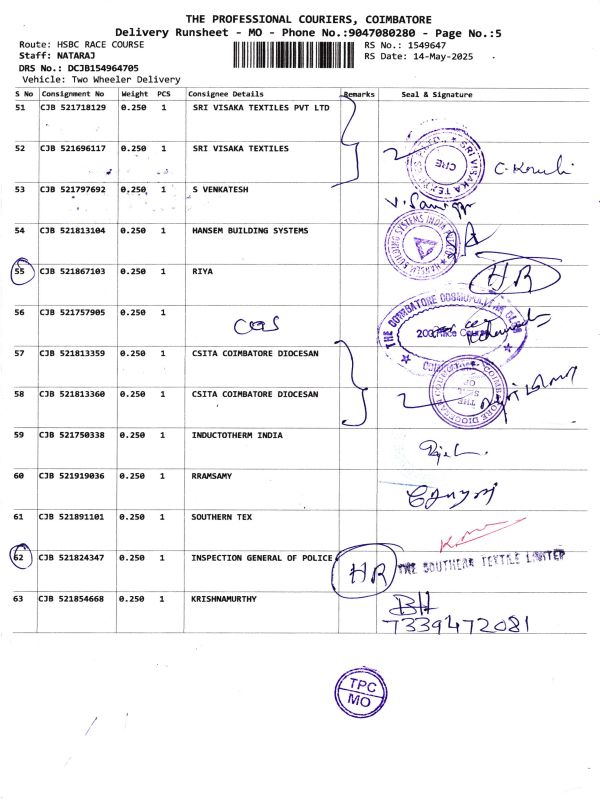 THE PROFESSIONAL COURIERS, COIMBATORE
Delivery Runsheet - MO - Phone No.:9047080280 - Page No.:5
Route: HSBC RACE COURSE
RS No.: 1549647
Staff: NATARAJ
RS Date: 14-May-2025
DRS No.: DCJB154964705
Vehicle: Two Wheeler Delivery
S No Consignment No Weight PCS Consignee Details Remarks Seal & Signature
51 CJB 521718129 0.250 1 SRI VISAKA TEXTILES PVT LTD
52 CJB 521696117 0.250 1 SRI VISAKA TEXTILES
SRI VISAKA
CHE
53 CJB 521797692 0.250 1 S VENKATESH
54 CJB 521813104 0.250 1 HANSEM BUILDING SYSTEMS
HANSEM BUILDING SYSTEMS INDIA
55 CJB 521867103 0.250 1 RIYA
HR
56 CJB 521757905 0.250 1
COS
THE COIMBATORE COSMOPOLITAN CLUB
57 CJB 521813359 0.250 1 CSITA COIMBATORE DIOCESAN
58 CJB 521813360 0.250 1 CSITA COIMBATORE DIOCESAN
59 CJB 521750338 0.250 1 INDUCTOTHERM INDIA
60 CJB 521919036 0.250 1 RRAMSAMY
61 CJB 521891101 0.250 1 SOUTHERN TEX
62 CJB 521824347 0.250 1 INSPECTION GENERAL OF POLICE
HR
THE SOUTHERN TEXTILE LIMITED
63 CJB 521854668 0.250 1 KRISHNAMURTHY
BH
7339472081
TPC
MO